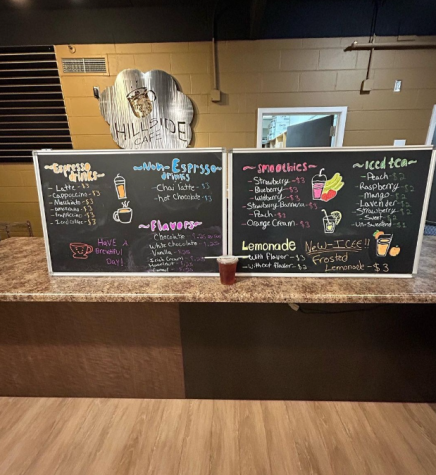 HILLSIDE
CAFE
~Espresso~
drinks
- Latte -$3
- Cappuccino -$3
- Macchiato -$3
- Americano -$3
- Frappuccino -$3
- Iced Coffee -$3
HAVE A
Beautiful
DAY!
~Non-Espresso~
drinks
- Chai latte -$3
- Hot Chocolate -$3
~Flavors~
Chocolate
White Chocolate
Vanilla
Irish Cream
Hazelnut
Caramel
~Smoothies~
- Strawberry -$3
- Blueberry -$3
- Wildberry -$3
- Strawberry Banana
- Peach -$3
- Orange Cream -$3
Lemonade
- With Flavor -$3
- Without Flavor -$2
~Iced tea~
- Peach -$2
- Raspberry -$2
- Mango -$2
- Lavender -$2
- Strawberry -$2
- Sweet -$2
- Un-Sweetened -$2
New-ICEE!!
Frosted
Lemonade -$3